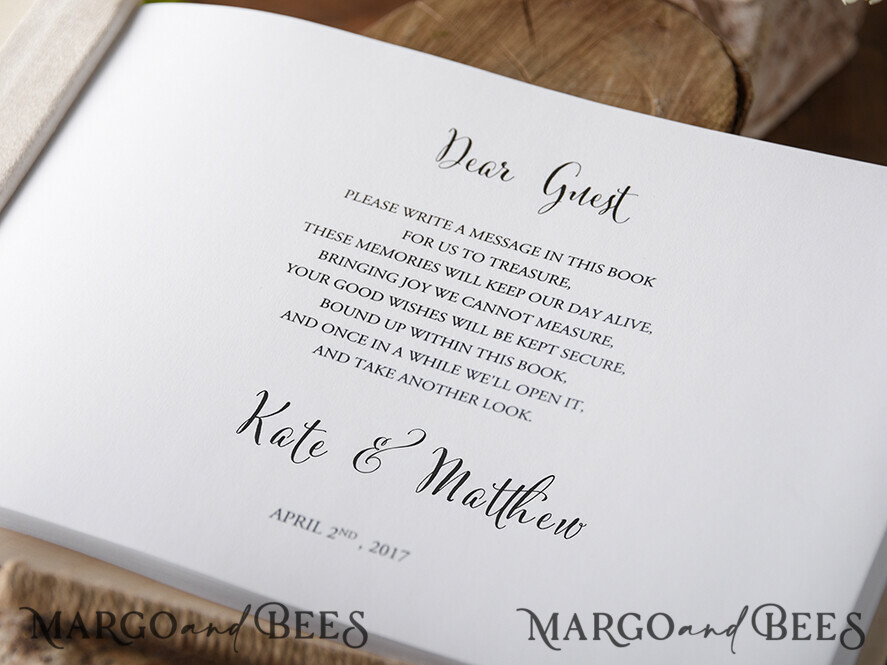 Dear Guest
PLEASE WRITE A MESSAGE IN THIS BOOK
FOR US TO TREASURE,
THESE MEMORIES WILL KEEP OUR DAY ALIVE,
BRINGING JOY WE CANNOT MEASURE,
YOUR GOOD WISHES WILL BE KEPT SECURE,
BOUND UP WITHIN THIS BOOK,
AND ONCE IN A WHILE WE'LL OPEN IT,
AND TAKE ANOTHER LOOK.
Kate & Matthew
APRIL 2ND, 2017
MARGO and BEES
MARGO and BEES